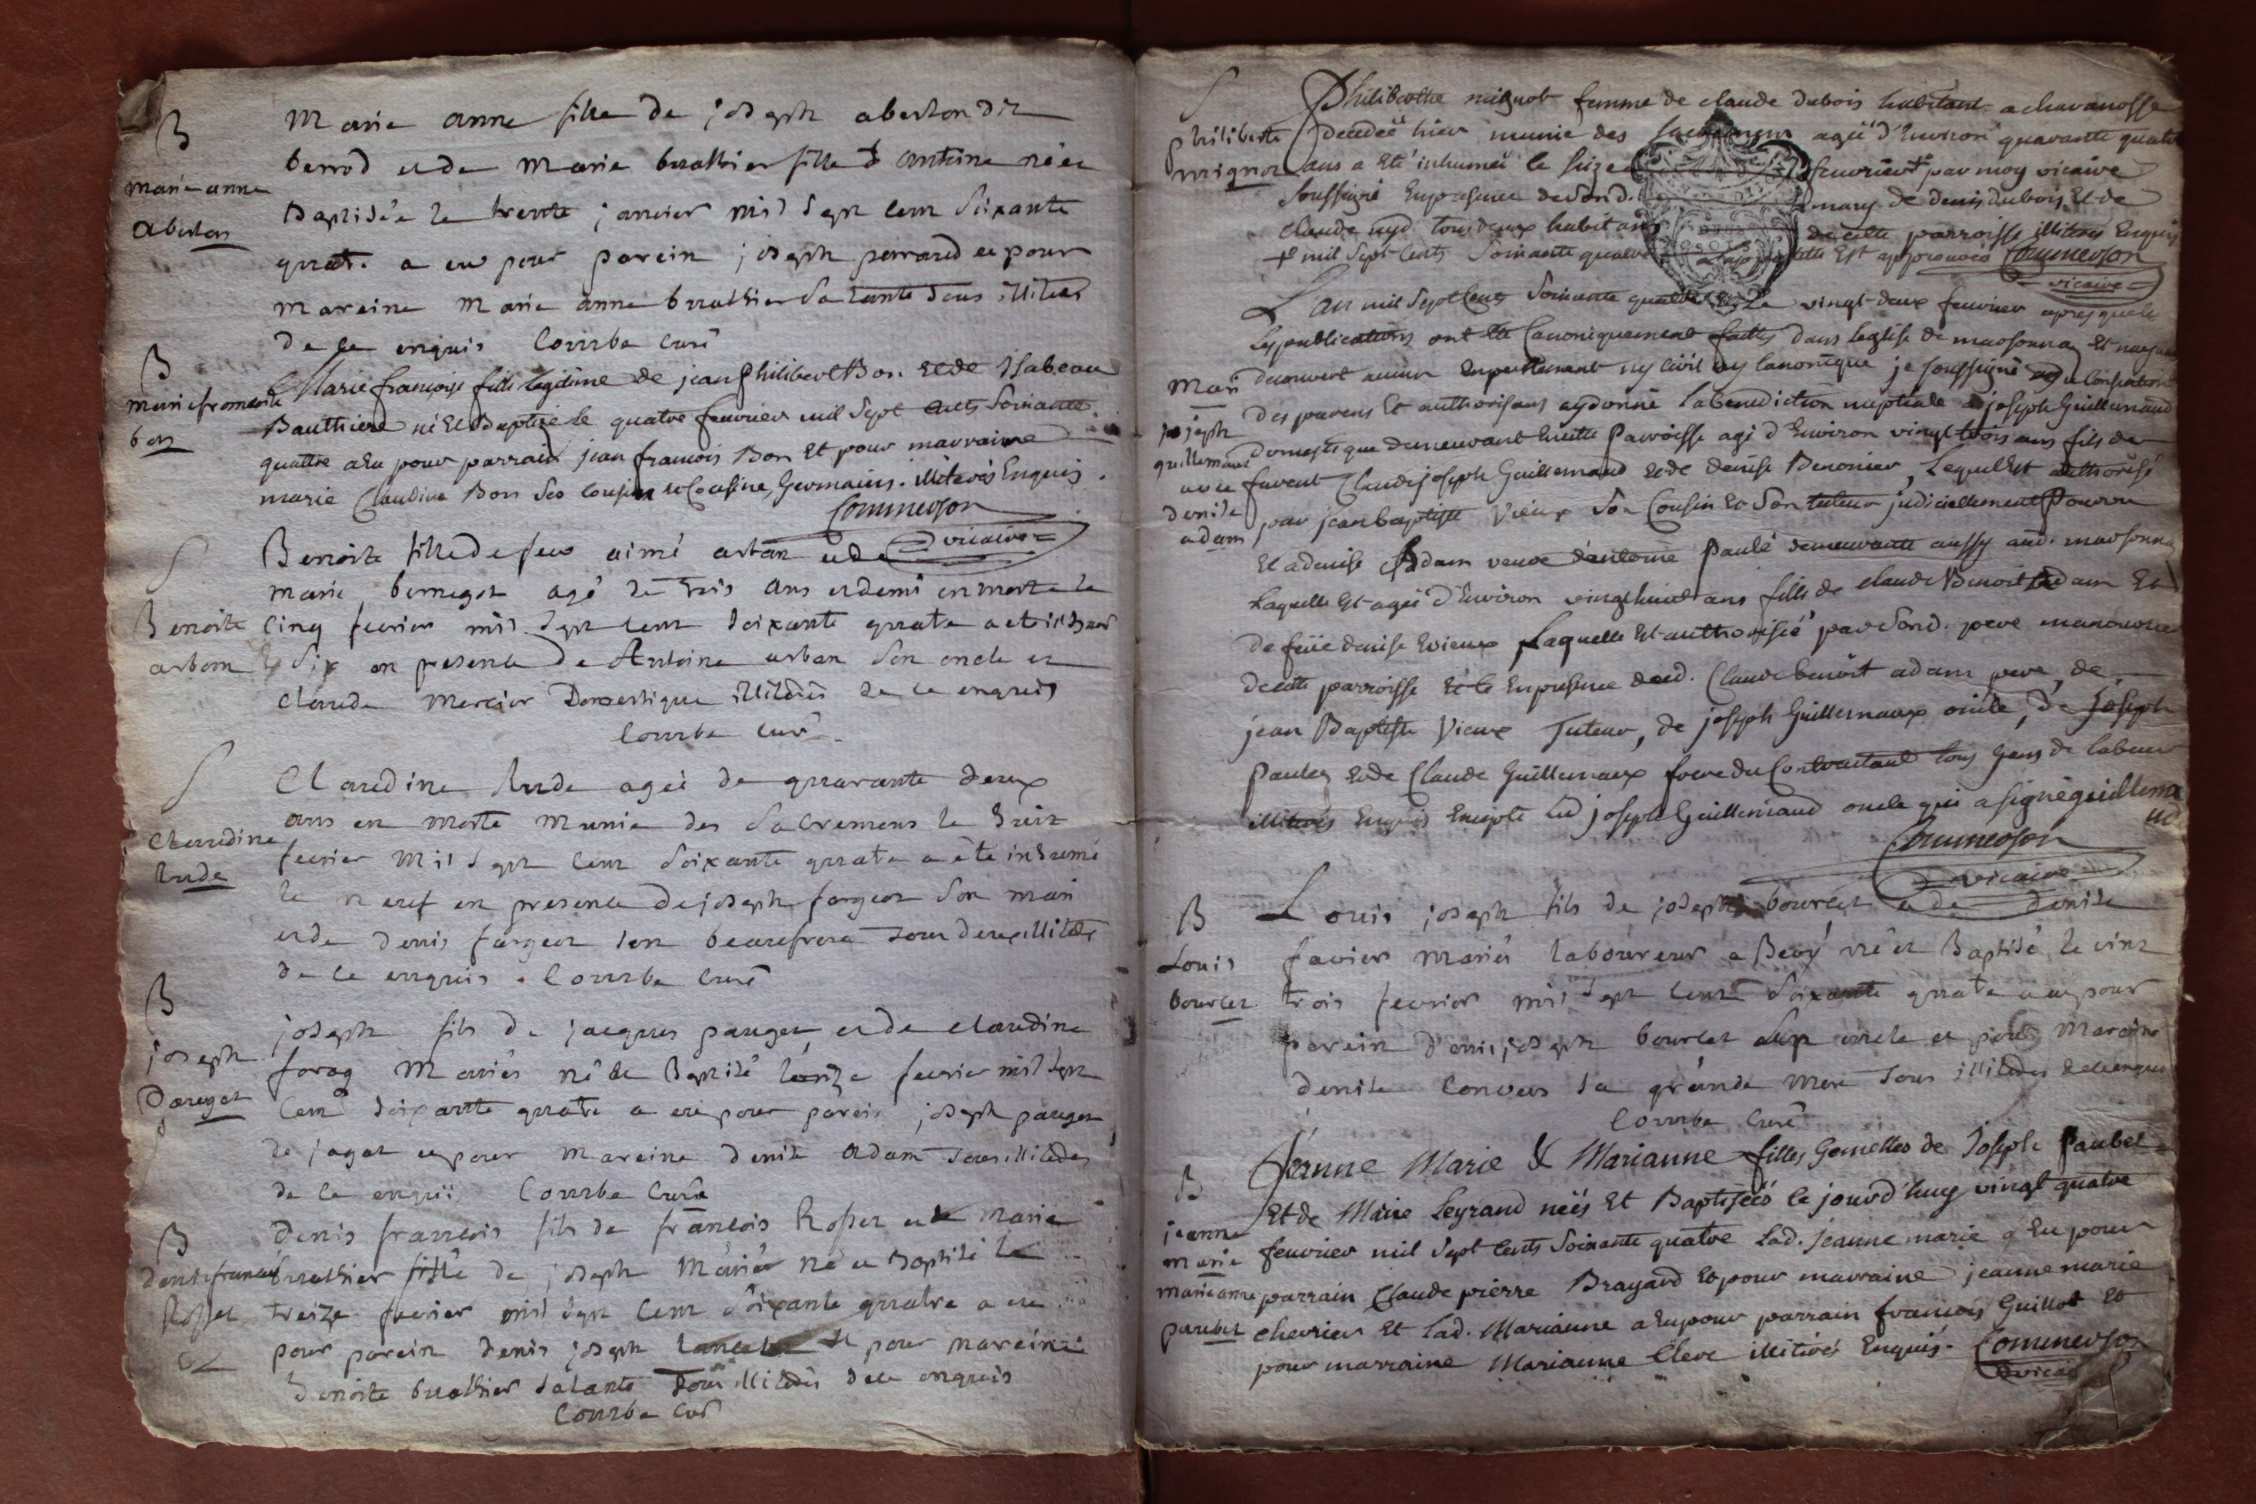 B
marie anne
Abeston
Marie anne fille de joseph abeston dit
berrod et de Marie buathier fille d antoine née et
Baptisée le trente janvier mil sept cent soixante
quatre a eu pour parein joseph perraud et pour
mareine Marie anne buathier sa tante tous illiteres
de ce enquis Courbe curé
B
marie francoise
bon
Marie françoise fille legitime de jean philibert Bon et de Isabeau
Bauthiere né et Baptisé le quatre feuvrier mil sept cents soixante
quattre a eu pour parrain jean francois Bon et pour marraine
marie Claudine Bon ses cousin et Cousine Germains. illiterés Enquis.
Commerson
vicaire
S
Benoite
arban
Benoite fille de feu aimé arban et de
marie bernegot agé de trois ans et demi en morte le
cinq fevrier mil sept cent soixante quatre a été inhumé
le six en presence de Antoine arban son oncle et
Claude Mercier Domestique illiterés de ce enquis
Courbe curé.
S
Claudine
Rude
Claudine Rude agée de quarante deux
ans en morte munie des sacremens le huit
fevrier mil sept cent soixante quatre a été inhumé
le neuf en presence de joseph forgeot son mari
et de denis forgeot son beaufrere tous deux illiterés
de ce enquis. Courbe Curé
B
joseph
Pauget
joseph fils de jacques pauget et de claudine
foray Mariés né et Baptisé l'onze fevrier mil sept
cent soixante quatre a eu pour parein joseph pauget
de jagat et pour mareine denise Adam tous illiterés
de ce enquis Courbe Curé
B
denis francois
Rosset
denis francois fils de francois Rosset et de Marie
buathier fille de joseph Mariés né et Baptisé le
treize fevrier mil sept cent soixante quatre a eu
pour parein denis joseph et pour mareine
Benoite buathier sa tante Tous illiterés de ce enquis
Courbe curé
S
philiberte
mignot
Philiberthe mignot femme de claude dubois habitant a chavanosse
decedeé hier munie des sacremens ageé d'Environ quarante quatre
ans a Eté inhumeé le seize feuvrier + par moy vicaire
soussigné En presence de sond. mary de denis dubois et de
claude nyd tous deux habitans de cette parroisse illiterés Enquis
+ mil sept cents soixante quatre Est approuvés Commerson
vicaire
Mari
joseph
guillemaud
avec
denise
adam
L'an mil sept cents soixante quatre et le vingt-deux feuvrier apres que le
les publications ont eté Canoniquement faittes dans l'eglise de maosonnay Et n'ayant
decouvert aucun Empechement ny civil ny canonique je soussigné du consentement
des parens Et authorisans ay donné la benediction nuptiale a joseph Guillemaud
domestique demeurant En cette Parroisse agé d'Environ vingt trois ans fils de
furent Claude joseph Guillemaud et de denise Benonier, Lequel Est authorisé
par jean baptiste Vieux son Cousin et son tuteur judiciellement Pourvu
Et a denise Adam veuve d'antoine Paulé demeurante aussy aud. maosonnay
Laquelle Est ageé d'Environ vingt huit ans fille de claude Benoit Adam Et
de feüe denise Vieux Laquelle Est authoriseé par sond. pere manouvrier
de cette parroisse Et le En presence dud. Claude benoit adam pere, de
jean Baptiste Vieux Tuteur, de joseph Guillemaux oncle, de joseph
Paulez et de Claude Guillemaux frere du Contractant tous gens de labeur
illiterés Enquis Excepté led joseph Guillemaud oncle qui a signé guillema
ud
Commerson
vicaire
B
Louis
bourcet
Louis joseph fils de joseph bourcet et de denise
favier Mariés laboureur a Bevy né et Baptisé le vint
trois fevrier mil sept cent soixante quatre a eu pour
parein denis joseph bourcet son oncle et pour Mareine
denise Convers sa grande mere tous illiterés de ce enquis
Courbe Curé
B
jeanne
marie
marianne
paubel
Jeanne Marie & Marianne filles Gemelles de Joseph Paubel
Et de Marie Leyrand neés Et Baptiseés le jourd'huy vingt quatre
feuvrier mil sept cents soixante quatre Lad. jeanne marie a Eu pour
parrain Claude pierre Brayard Et pour marraine jeanne marie
chevrier Et Lad. Marianne a Eu pour parrain francois Guillot Et
pour marraine Marianne Cleve illiterés Enquis. Commerson
vicaire